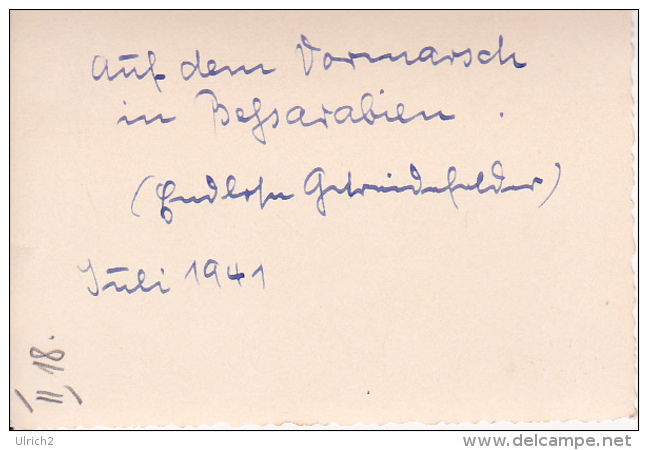 Auf dem Vormarsch
in Bessarabien.
(Endlose Getreidefelder)
Juli 1941
/II/ 18.
Ulrich2
www.delcampe.net